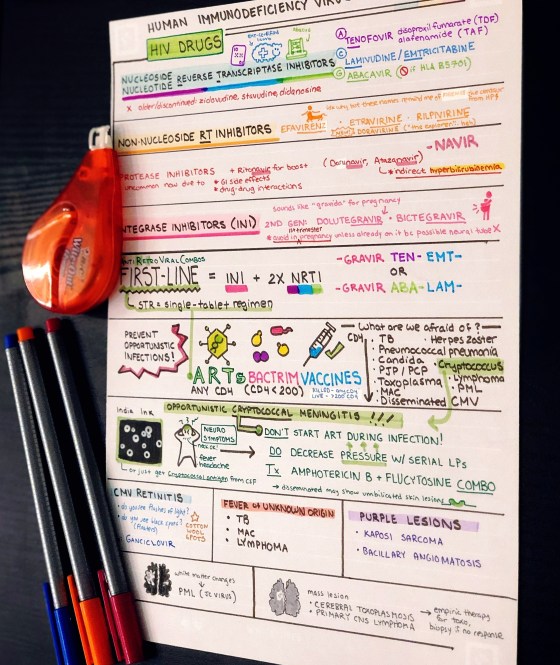 HUMAN IMMUNODEFICIENCY VIRUS
HIV DRUGS
NUCLEOSIDE
NUCLEOTIDE REVERSE TRANSCRIPTASE INHIBITORS
A TENOFOVIR disoproxil fumarate (TDF)
alafenamide (TAF)
C LAMIVUDINE / EMTRICITABINE
G ABACAVIR (if HLA B5701)
x older/discontinued: ziodovudine, stavudine, didanosine
NON-NUCLEOSIDE RT INHIBITORS
EFAVIRENZ
• ETRAVIRINE • RILPIVIRINE
PROTEASE INHIBITORS
uncommon now due to
+ Ritonavir for boost
* GI side effects
* drug-drug interactions
(Darunavir, Atazanavir)
-NAVIR
indirect hyperbilirubinemia
INTEGRASE INHIBITORS (INI)
sounds like "gravida" for pregnancy
2ND GEN: DOLUTEGRAVIR • BICTEGRAVIR
* avoid in pregnancy unless already on it bc possible neural tube X
ANTI RETROVIRAL COMBOS
FIRST-LINE = INI + 2X NRTI
STR = single-tablet regimen
-GRAVIR TEN- EMT-
OR
-GRAVIR ABA- LAM-
PREVENT
OPPORTUNISTIC
INFECTIONS!
ARTs BACTRIM VACCINES
ANY CD4 (CD4 < 200)
KILLED - ANY CD4
LIVE - >200 CD4
What are we afraid of?
CD4
• TB
• Herpes Zoster
Pneumococcal pneumonia
Candida
• PJP / PCP
• Toxoplasma
• MAC
Disseminated CMV
Cryptococcus
• Lymphoma
• PML
OPPORTUNISTIC CRYPTOCOCCAL MENINGITIS !!!
India Ink
or just get Cryptococcal antigen from CSF
NEURO
SYMPTOMS
fever
headache
DON'T START ART DURING INFECTION!
DO DECREASE PRESSURE W/ SERIAL LPs
Tx AMPHOTERICIN B + FLUCYTOSINE COMBO
→ disseminated may show umbilicated skin lesions
CMV RETINITIS
• do you see flashes of light?
• do you see black spots?
(floaters)
COTTON
WOOL
SPOTS
GANCICLOVIR
FEVER of UNKNOWN ORIGIN
• TB
• MAC
• LYMPHOMA
PURPLE LESIONS
• KAPOSI SARCOMA
• BACILLARY ANGIOMATOSIS
white matter changes
PML (JC VIRUS)
mass lesion
• CEREBRAL TOXOPLASMOSIS
• PRIMARY CNS LYMPHOMA
→ empiric therapy
for toxo,
biopsy if no response